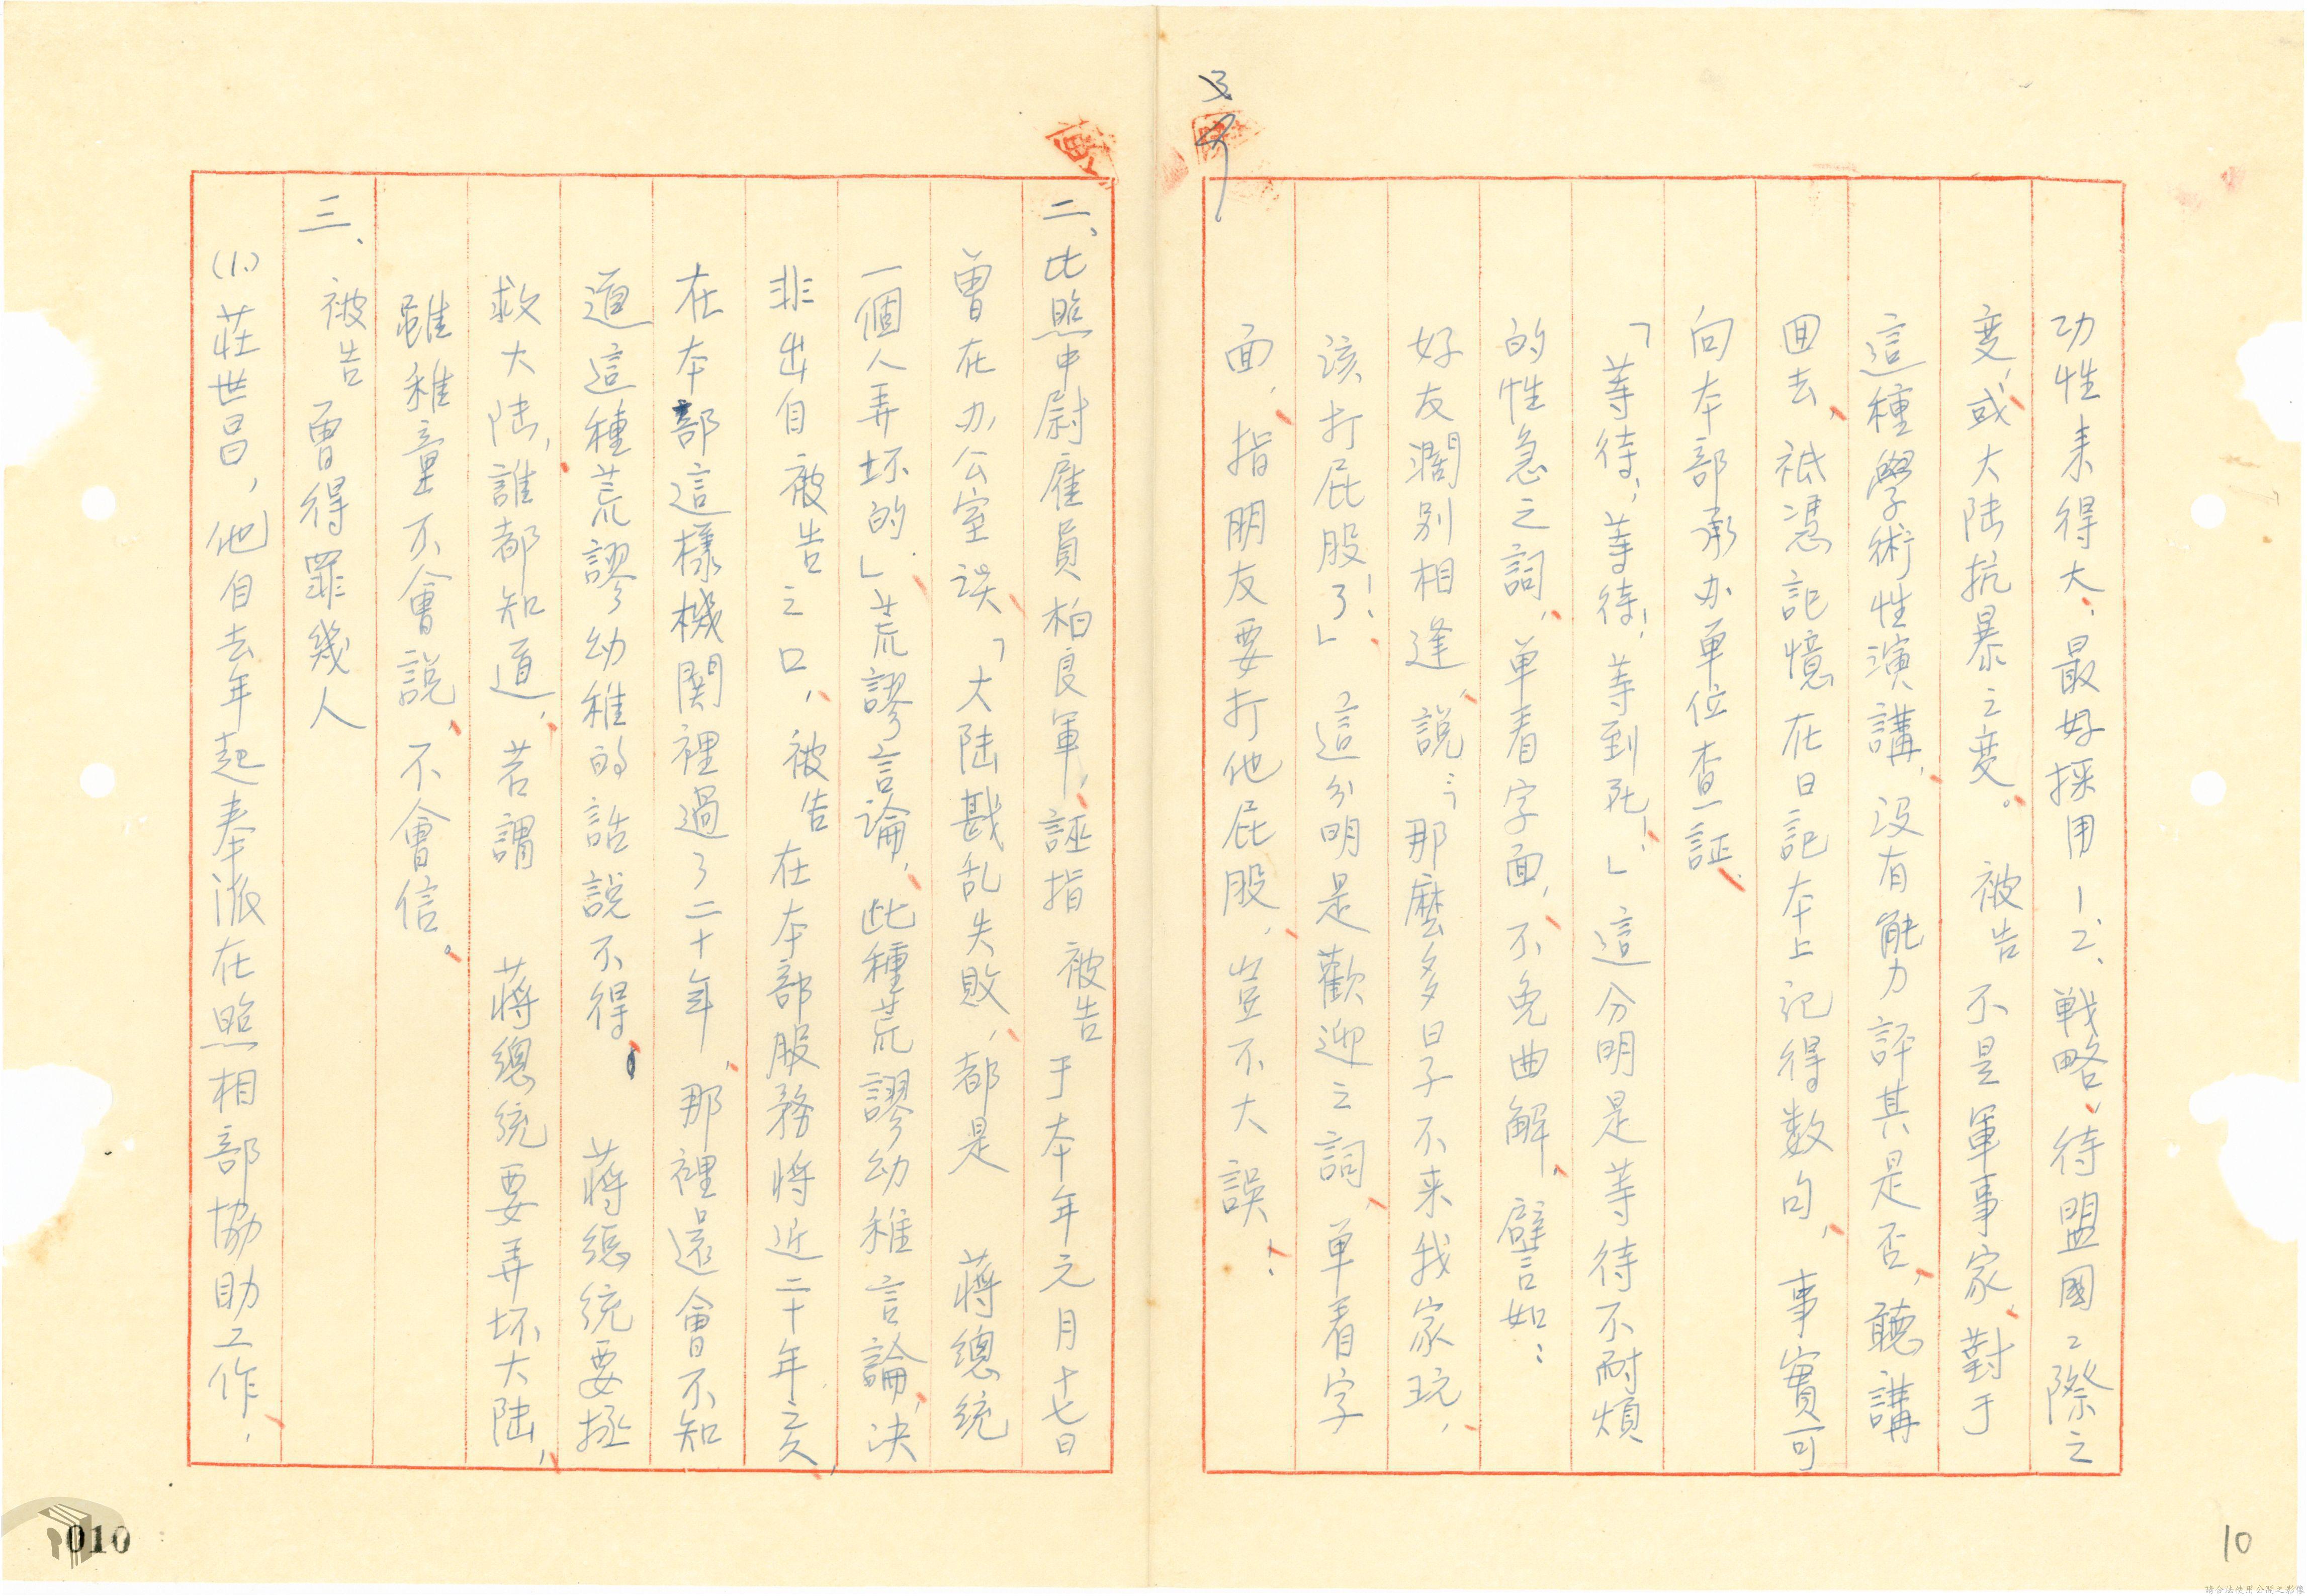 功性来得大，最好採用1、2、戰略，待盟國々際之
变，或大陆抗暴之变。被告不是軍事家，對于
這種學術性演講，没有能力評其是否，聽講
回去，祗憑記憶在日記本上記得数句，事實可
向本部承办单位查証，
「等待，等待！等到死！」這分明是等待不耐煩
的性急之詞，单看字面，不免曲解，譬如：
好友濶别相逢，說：「那麽多日子不来我家玩，
該打屁股了！」這分明是歡迎之詞，单看字
面，指朋友要打他屁股，豈不大誤！
二、比照中尉雇員柏良軍，誣指被告于本年元月十七日
曾在办公室談「大陆戡乱失敗，都是蔣總統
一個人弄坏的」荒謬言論，此種荒謬幼稚言論，决
非出自被告之口，被告在本部服務将近二十年亥，
在本部這樣機関裡過了二十年，那裡還會不知
道這種荒謬幼稚的話說不得，蔣總統要拯
救大陆，誰都知道，若謂蔣總統要弄坏大陆，
雖稚童不會說，不會信。
三、被告曾得罪幾人
(1.)莊世昌，他自去年起奉派在照相部協助工作，
3
010
10
請合法使用公開之影像